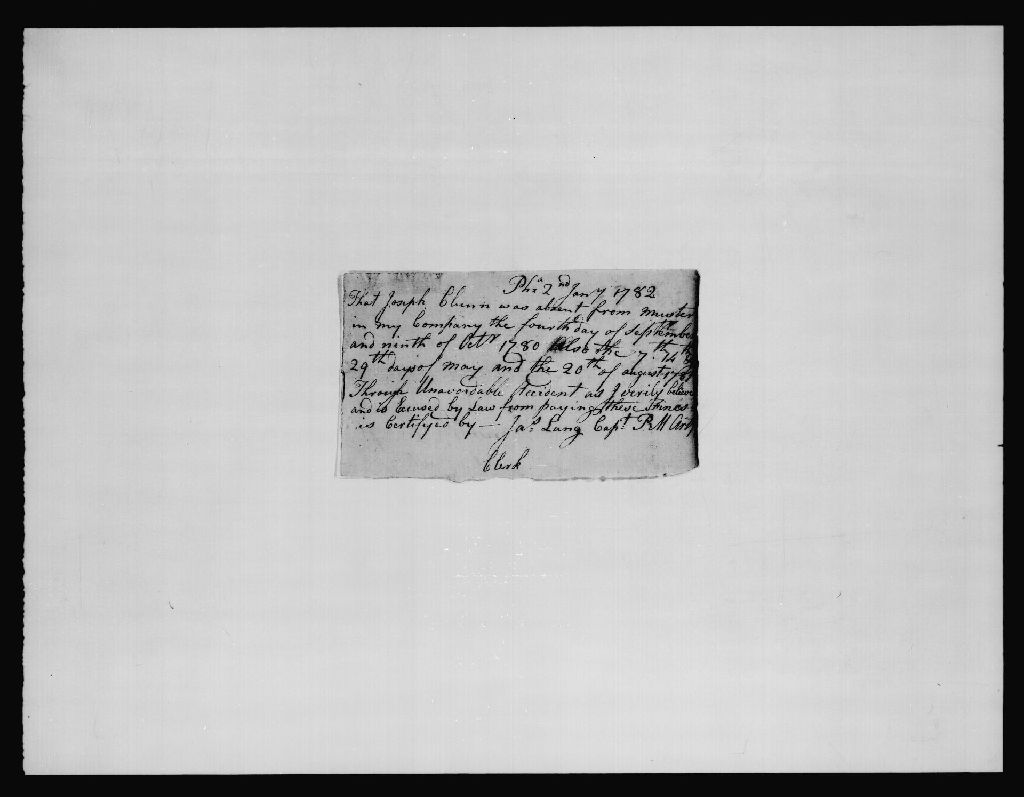 Pha 2nd Jany 1782
That Joseph Clunn was absent from muster
in my Company the fourth day of September
and ninth of Octr 1780 Also the 7th 14th &
29th days of may and the 20th of august 1781
Through Unavoidable Accident as I verily believe
and is Excused by Law from paying these fines
is Certifyed by — Jas Lang Capt P M Arty
Clerk